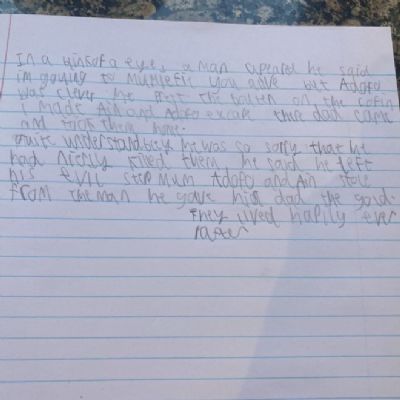 In a wink of a eye, a man apeared he said
im gouing to mumiefie you alive but Adofo
was clever he prest the buten on the cofin
it made Ain and Adofo excape there dad came
and took them home.
quite understandbley he was so sorry that he
had nierly killed them, he said he left
his evil step mum Adofo and Ain stole
From the man he gave his dad the gold.
They lived happily ever
rafter